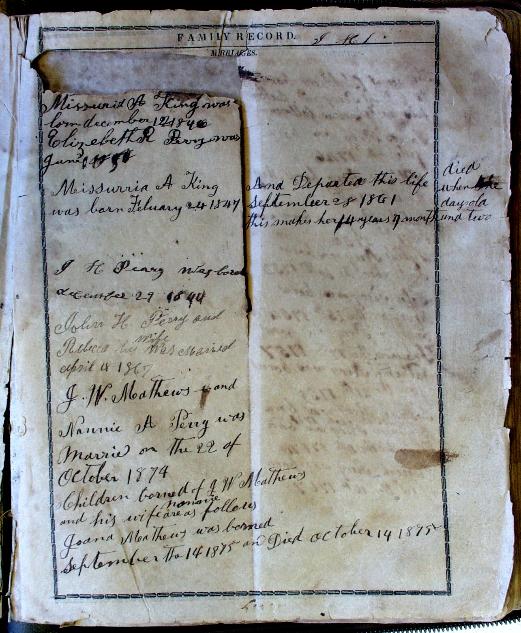 FAMILY RECORD.
MARRIAGES.
Missuria A King was
born december 12 1846
Elizebeth R Perry was
June
Missurria A King
was born Febuary 24 1847
And Departed this life
September 28 1861
this makes her 14 years 7 months and two
died
when she
day old
J H Peary was born
december 29 1844
John H Perry and
Rebeca his wife was Married
april 4 1867
J. W. Mathews and
Nannie A Perry was
Marrie on the 22 of
October 1874
Children borned of J W Mathews
and his wife Nannie are as follows
Joana Mathews was borned
September the 14 1875 an Died October 14 1875